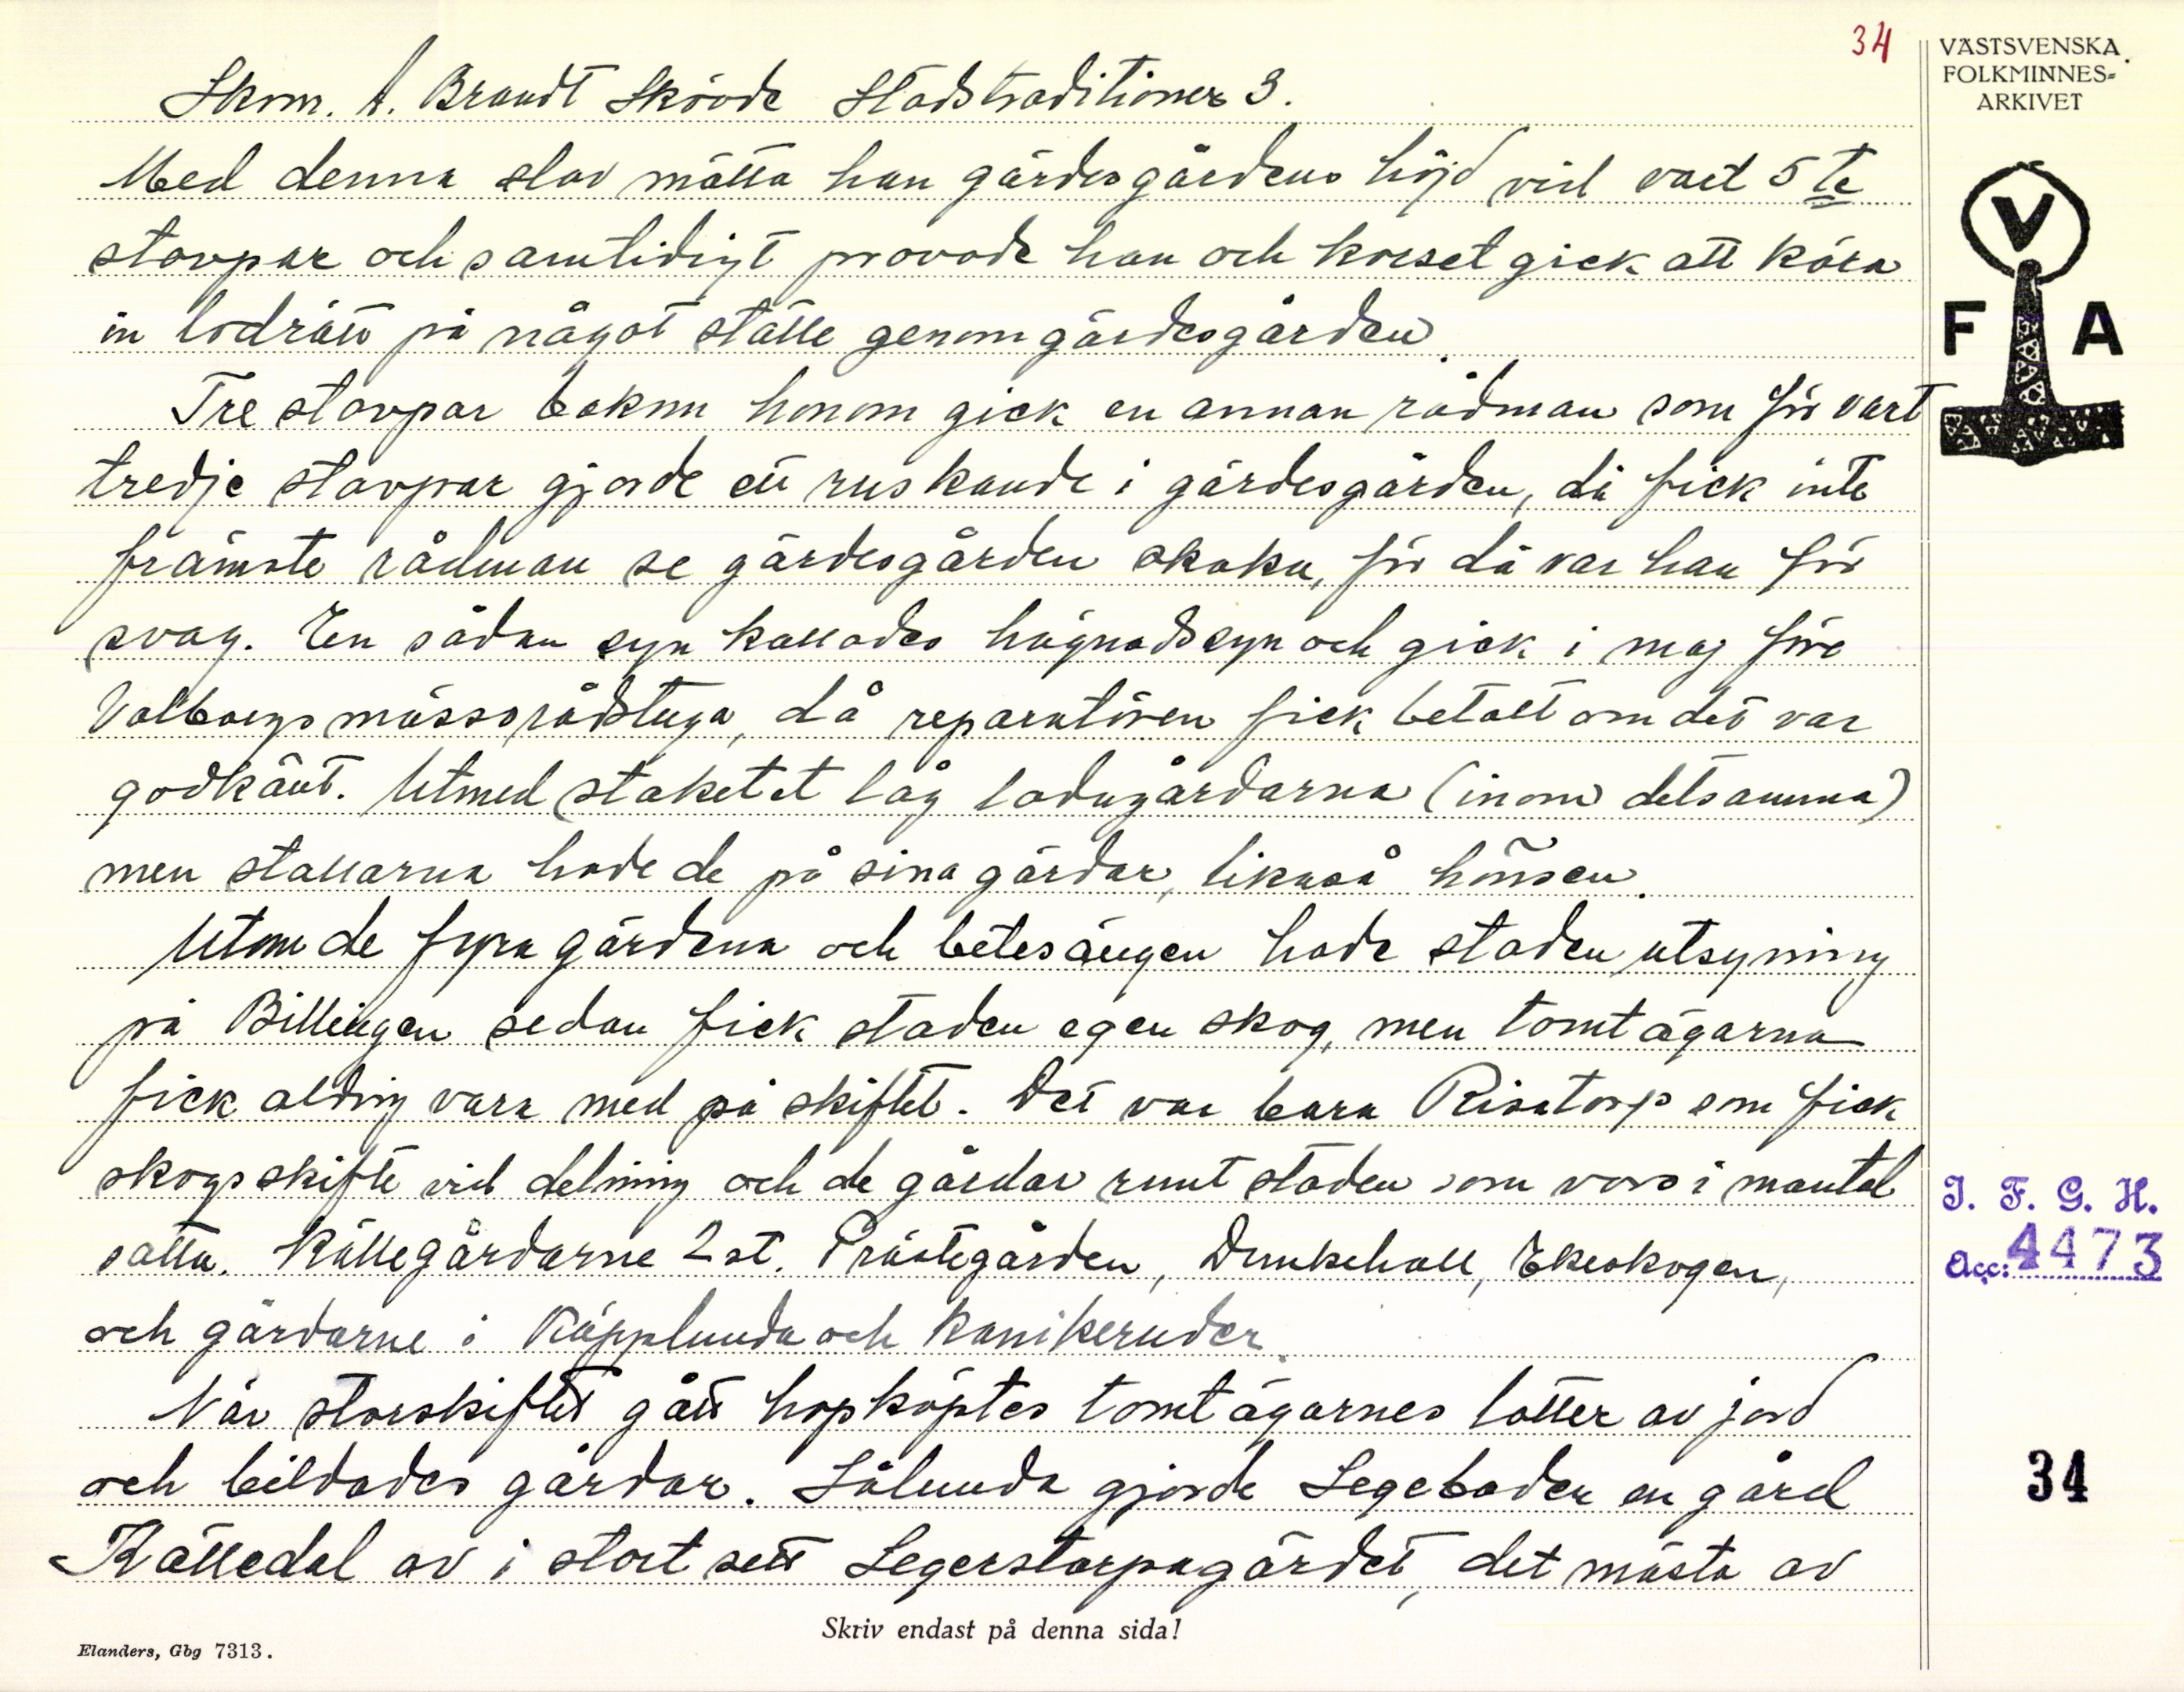 34
VÄSTSVENSKA
FOLKMINNES-
ARKIVET
Skom. A. Brandt Skövde Stadstraditioner 3.
Med denna stav mätta han gärdesgårdens höjd vid vart 5te
stavpar och samtidigt provade han och korset gick att köra
in lodrätt på något ställe genom gärdesgården.
Tre stavpar bakom honom gick en annan rådman som för vart
tredje stavpar gjorde ett ruskande i gärdesgården, då fick inte
främste rådman se gärdesgården skaka, för då var han för
svag. En sådan syn kallades hägnadssyn och gick i maj före
Valborgsmässorådstuga, då reparatören fick betalt om det var
godkänt. Utmed staketet låg ladugårdarna (inom detsamma)
men stallarna hade de på sina gårdar, likaså hönsen.
Utom de fyra gärdena och betesängen hade staden utsyning
på Billingen sedan fick staden egen skog, men tomtägarna
fick aldrig vara med på skiftet. Det var bara Risatorp som fick
skogsskifte vid delning och de gårdar runt staden som voro i mantal
satta. Källegårdarne 2 st. Prästegården, Dunkehall, Ekeskogen,
och gårdarne i Käpplunda och Kanikeruder.
När storskiftet gått hopköptes tomtägarnes lotter av jord
och bildades gårdar. Sålunda gjorde Segebaden en gård
Källedal av i stort sett Segerstorpagärdet, det mästa av
V
F A
I. F. G. H.
Acc: 4473
34
Skriv endast på denna sida!
Elanders, Gbg 7313.